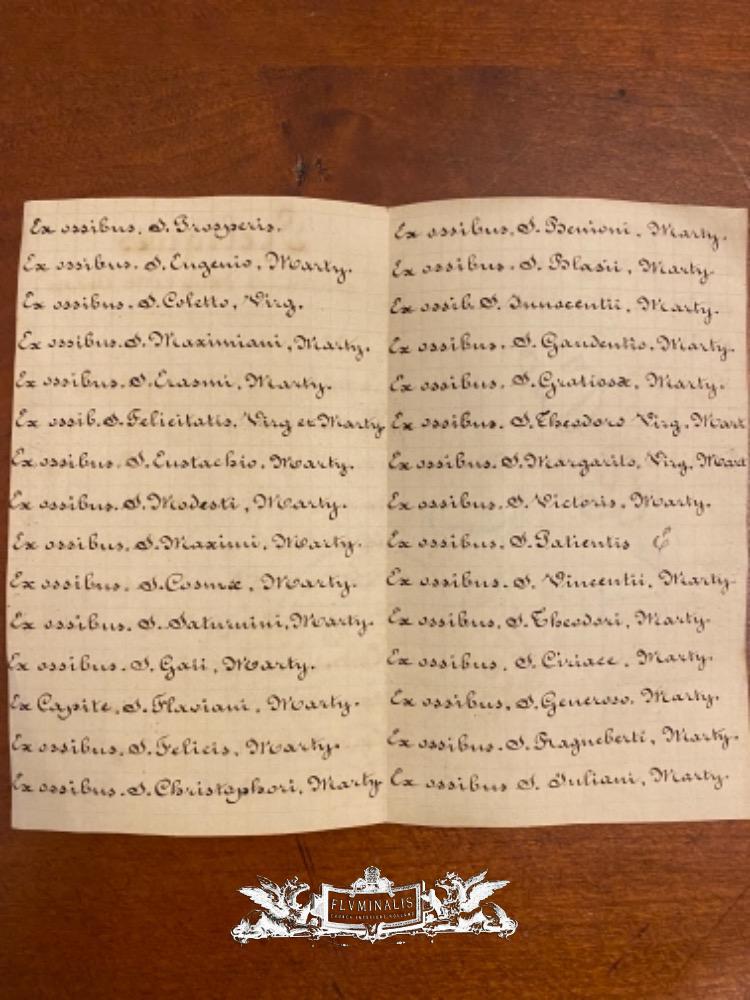 Ex ossibus. S. Prosperis.
Ex ossibus. S. Eugenio, Marty.
Ex ossibus. S. Coletto, Virg.
Ex ossibus. S. Maximiani, Marty.
Ex ossibus. S. Erasmi, Marty.
Ex ossib. S. Felicitatis. Virg et Marty
Ex ossibus. S. Eustachio, Marty.
Ex ossibus. S. Modesti, Marty.
Ex ossibus. S. Maximi, Marty.
Ex ossibus. S. Cosmæ, Marty.
Ex ossibus. S. Saturnini, Marty.
Ex ossibus. S. Gali, Marty.
Ex Capite. S. Flaviani, Marty.
Ex ossibus. S. Felicis, Marty.
Ex ossibus. S. Christophori, Marty
Ex ossibus. S. Marty.
Ex ossibus. S. Blasii, Marty.
Ex ossib. S. Innocentii, Marty.
Ex ossibus. S. Gaudentio. Marty.
Ex ossibus. S. Gratiosæ, Marty.
Ex ossibus. S. Theodoro Virg. Mart
Ex ossibus. S. Margarito, Virg. Mart
Ex ossibus. S. Victoris, Marty.
Ex ossibus. S. Patientis
Ex ossibus. S. Vincentii, Marty.
Ex ossibus. S. Theodori, Marty.
Ex ossibus. S. Ciriace, Marty.
Ex ossibus. S. Generoso. Marty.
Ex ossibus. S. Fragneberti, Marty.
Ex ossibus S. Juliani, Marty.
FLVMINALIS
CHURCH INTERIORS HOLLAND